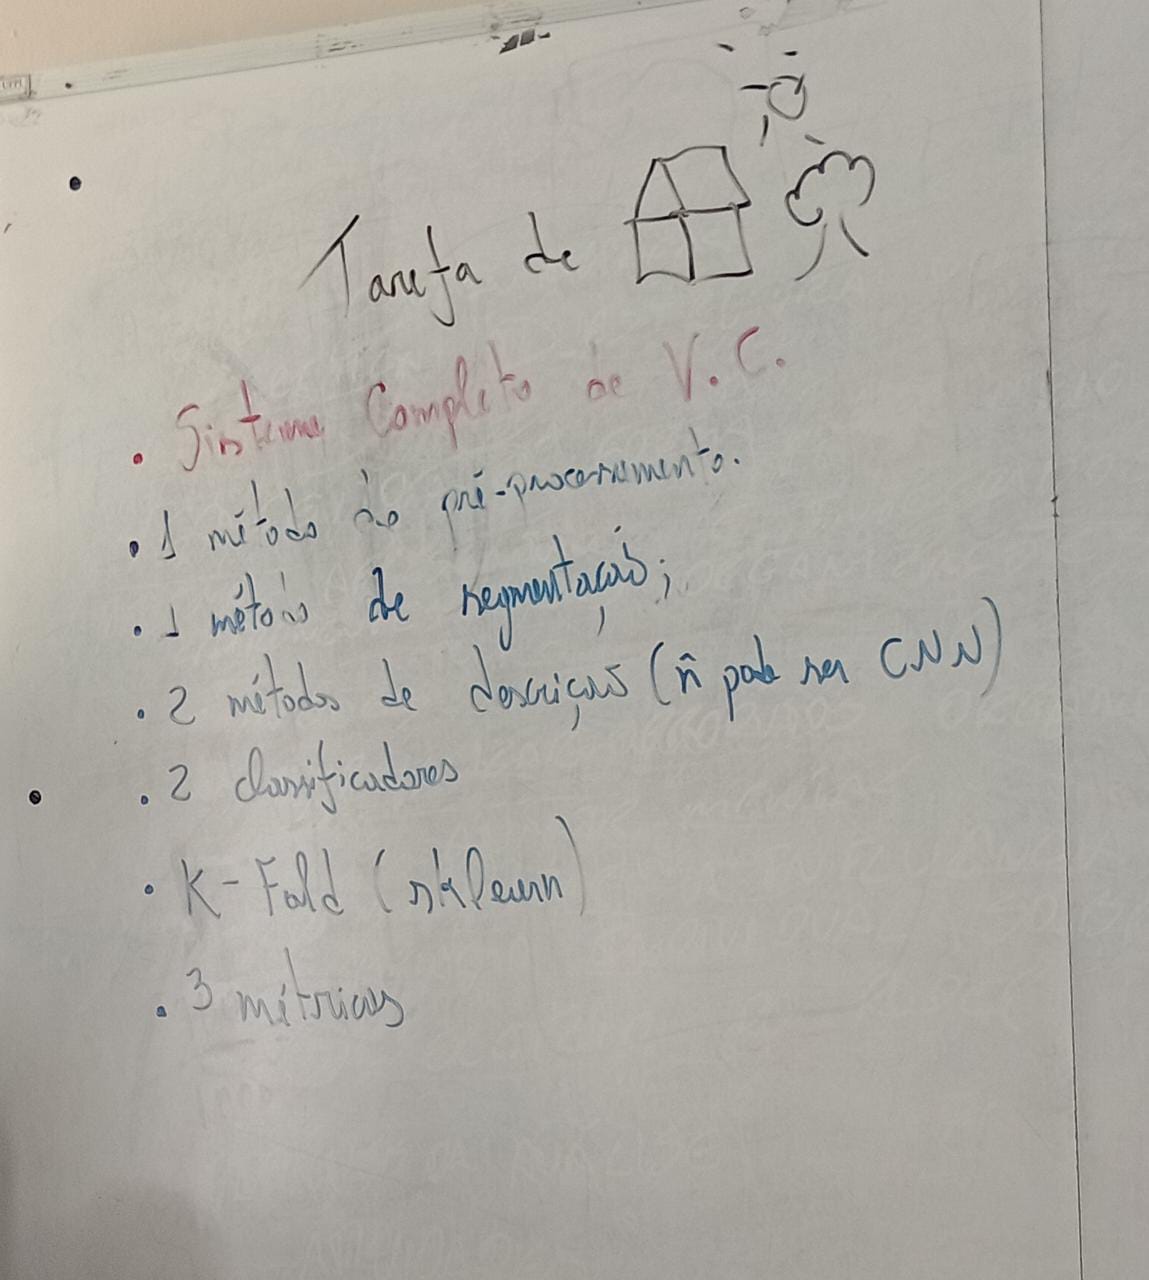 Tarefa de
• Sistema Completo de V.C.
• 1 método de pré-processamento.
• 1 método de segmentação;
• 2 métodos de descrição (ñ pode ser CNN)
• 2 classificadores
• K-Fold (sklearn)
• 3 métricas